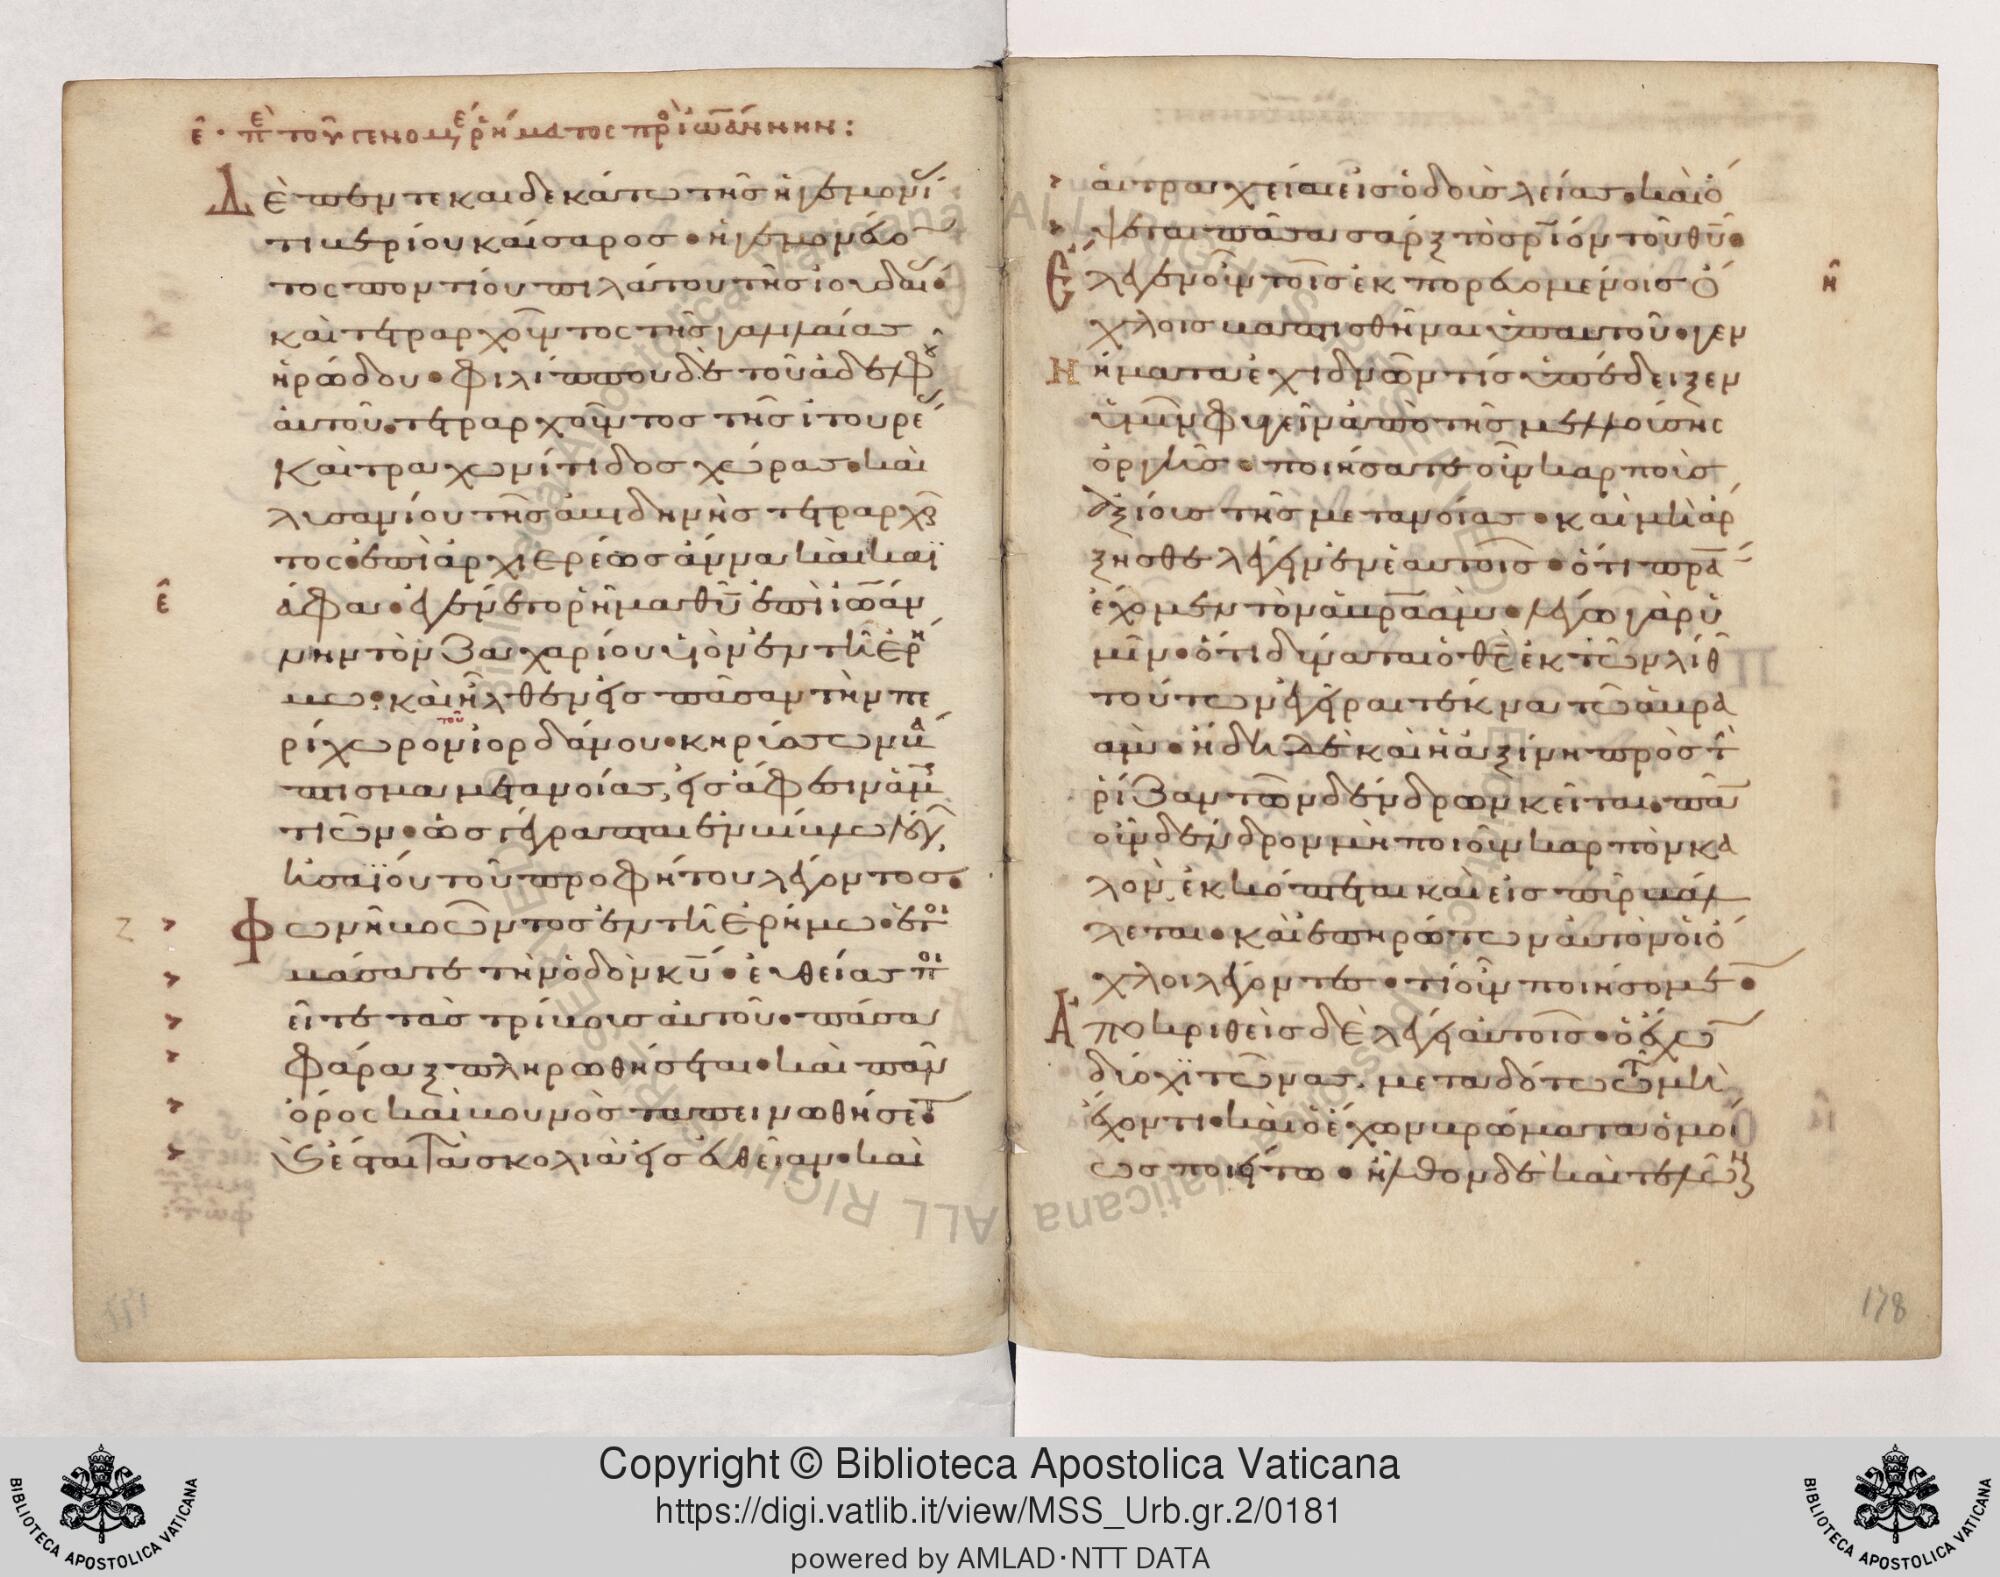 ε̂ · πὲ τοῦ γενομέ ῥήματος πρὸ ἰω̄άννην :
Δὲ πεντεκαιδεκάτω τῆς ἡγεμονί
τιβερίου καίσαρος • ἡγεμονεύο
τος ποντίου πιλάτου τῆς ἰουδαί •
καὶ τετραρχοῦντος τῆς γαλιλαίας
ἡρώδου • φιλίππου δὲ τοῦ ἀδελφ
αὐτοῦ • τετραρχοῦντος τῆς ἰτουρέ
καὶ τραχωνίτιδος χώρας • καὶ
λυσανίου τῆς ἀβιδηνῆς τετραρχ
τος • ἐπὶ ἀρχιερέως ἄννα καὶ καϊ
ε̂
άφα • ἐγένετο ῥῆμα θῡ ἐπὶ ἰω̄άν
νην τὸν ζαχαρίου υἱὸν ἐν τῆ ἐρή
μω • καὶ ἦλθεν εἰς πᾶσαν τὴν πε
τοῦ
ρίχωρον ἰορδάνου • κηρύσσων βά
πτισμα μετανοίας, εἰς ἄφεσιν ἁμ
τιῶν • ὡς γέγραπται ἐν βίβλω λόγ
ησαΐου τοῦ προφήτου λέγοντος •
Ζ
Φωνὴ βοῶντος ἐν τῆ ἐρήμω • ἑτοι
μάσατε τὴν ὁδὸν κῡ • εὐθείας ποι
εῖτε τὰς τρίβους αὐτοῦ • πᾶσα
φάραγξ πληρωθήσεται • καὶ πᾶν
ὄρος καὶ βουνὸς ταπεινωθήσετ
Ὲσται τὰ σκολιὰ εἰς εὐθεῖαν • καὶ
αἱ τραχεῖαι εἰς ὁδοὺς λείας • καὶ ὄ
ψεται πᾶσα σάρξ τὸ σρ̄ιον τοῦ θῡ •
Ἔλεγεν οὖν τοῖς ἐκπορευομένοις ὄ
η̂
χλοις βαπτισθῆναι ὑπ' αὐτοῦ • γεν
Η
ήματα ἐχιδνῶν τίς ὑπέδειξεν
ὑμῖν φυγεῖν ἀπὸ τῆς μελλούσης
ὀργῆς • ποιήσατε οὖν καρποὺς
ἀξίους τῆς μετανοίας • καὶ μὴ ἄρ
ξησθε λέγειν ἐν ἑαυτοῖς • ὅτι πρ̄α
ἔχομεν τὸν ἀβραὰμ • λέγω γὰρ ὑ
μῖν • ὅτι δύναται ὁ θς̄ ἐκ τῶν λίθ
τούτων ἐγεῖραι τέκνα τῶ ἀβρα
ὰμ • ἤδη δὲ καὶ ἡ ἀξίνη πρὸς τ
ῥίζαν τῶν δένδρων κεῖται • πᾶν
οὖν δένδρον μὴ ποιοῦν καρπὸν κα
λὸν, ἐκκόπτεται καὶ εἰς πῦρ βάλ
λεται • καὶ ἐπηρώτων αὐτὸν οἱ ὄ
χλοι λέγοντες • τί οὖν ποιήσομεν •
Ἀποκριθεὶς δὲ λέγει αὐτοῖς • ὁ ἔχω
δύο χϊτῶνας, μεταδότω τῶ μὴ
ἔχοντι • καὶ ὁ ἔχων βρώματα ὁμοί
ως ποιείτω • ἦλθον δὲ καὶ τελῶ
178
Copyright © Biblioteca Apostolica Vaticana
https://digi.vatlib.it/view/MSS_Urb.gr.2/0181
powered by AMLAD·NTT DATA
BIBLIOTECA APOSTOLICA VATICANA
BIBLIOTECA APOSTOLICA VATICANA